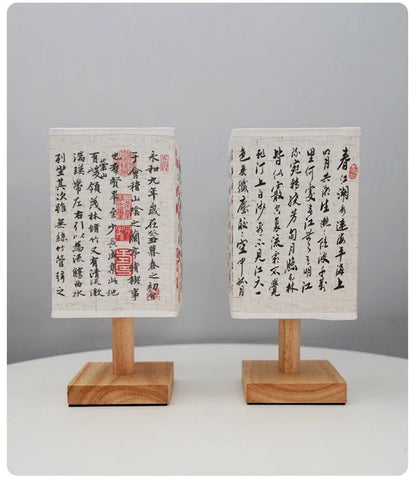 永和九年歲在癸丑暮春之初會
于會稽山陰之蘭亭脩稧事
也羣賢畢至少長咸集此地
有崇山峻領茂林脩竹又有清流激
湍暎帶左右引以為流觴曲水
列坐其次雖無絲竹管弦之
春江潮水連海平海上
明月共潮生灩灩隨波千萬
里何處春江無月明江
流宛轉繞芳甸月照花林
皆似霰空裏流霜不覺
飛汀上白沙看不見江天一
色無纖塵皎皎空中孤月